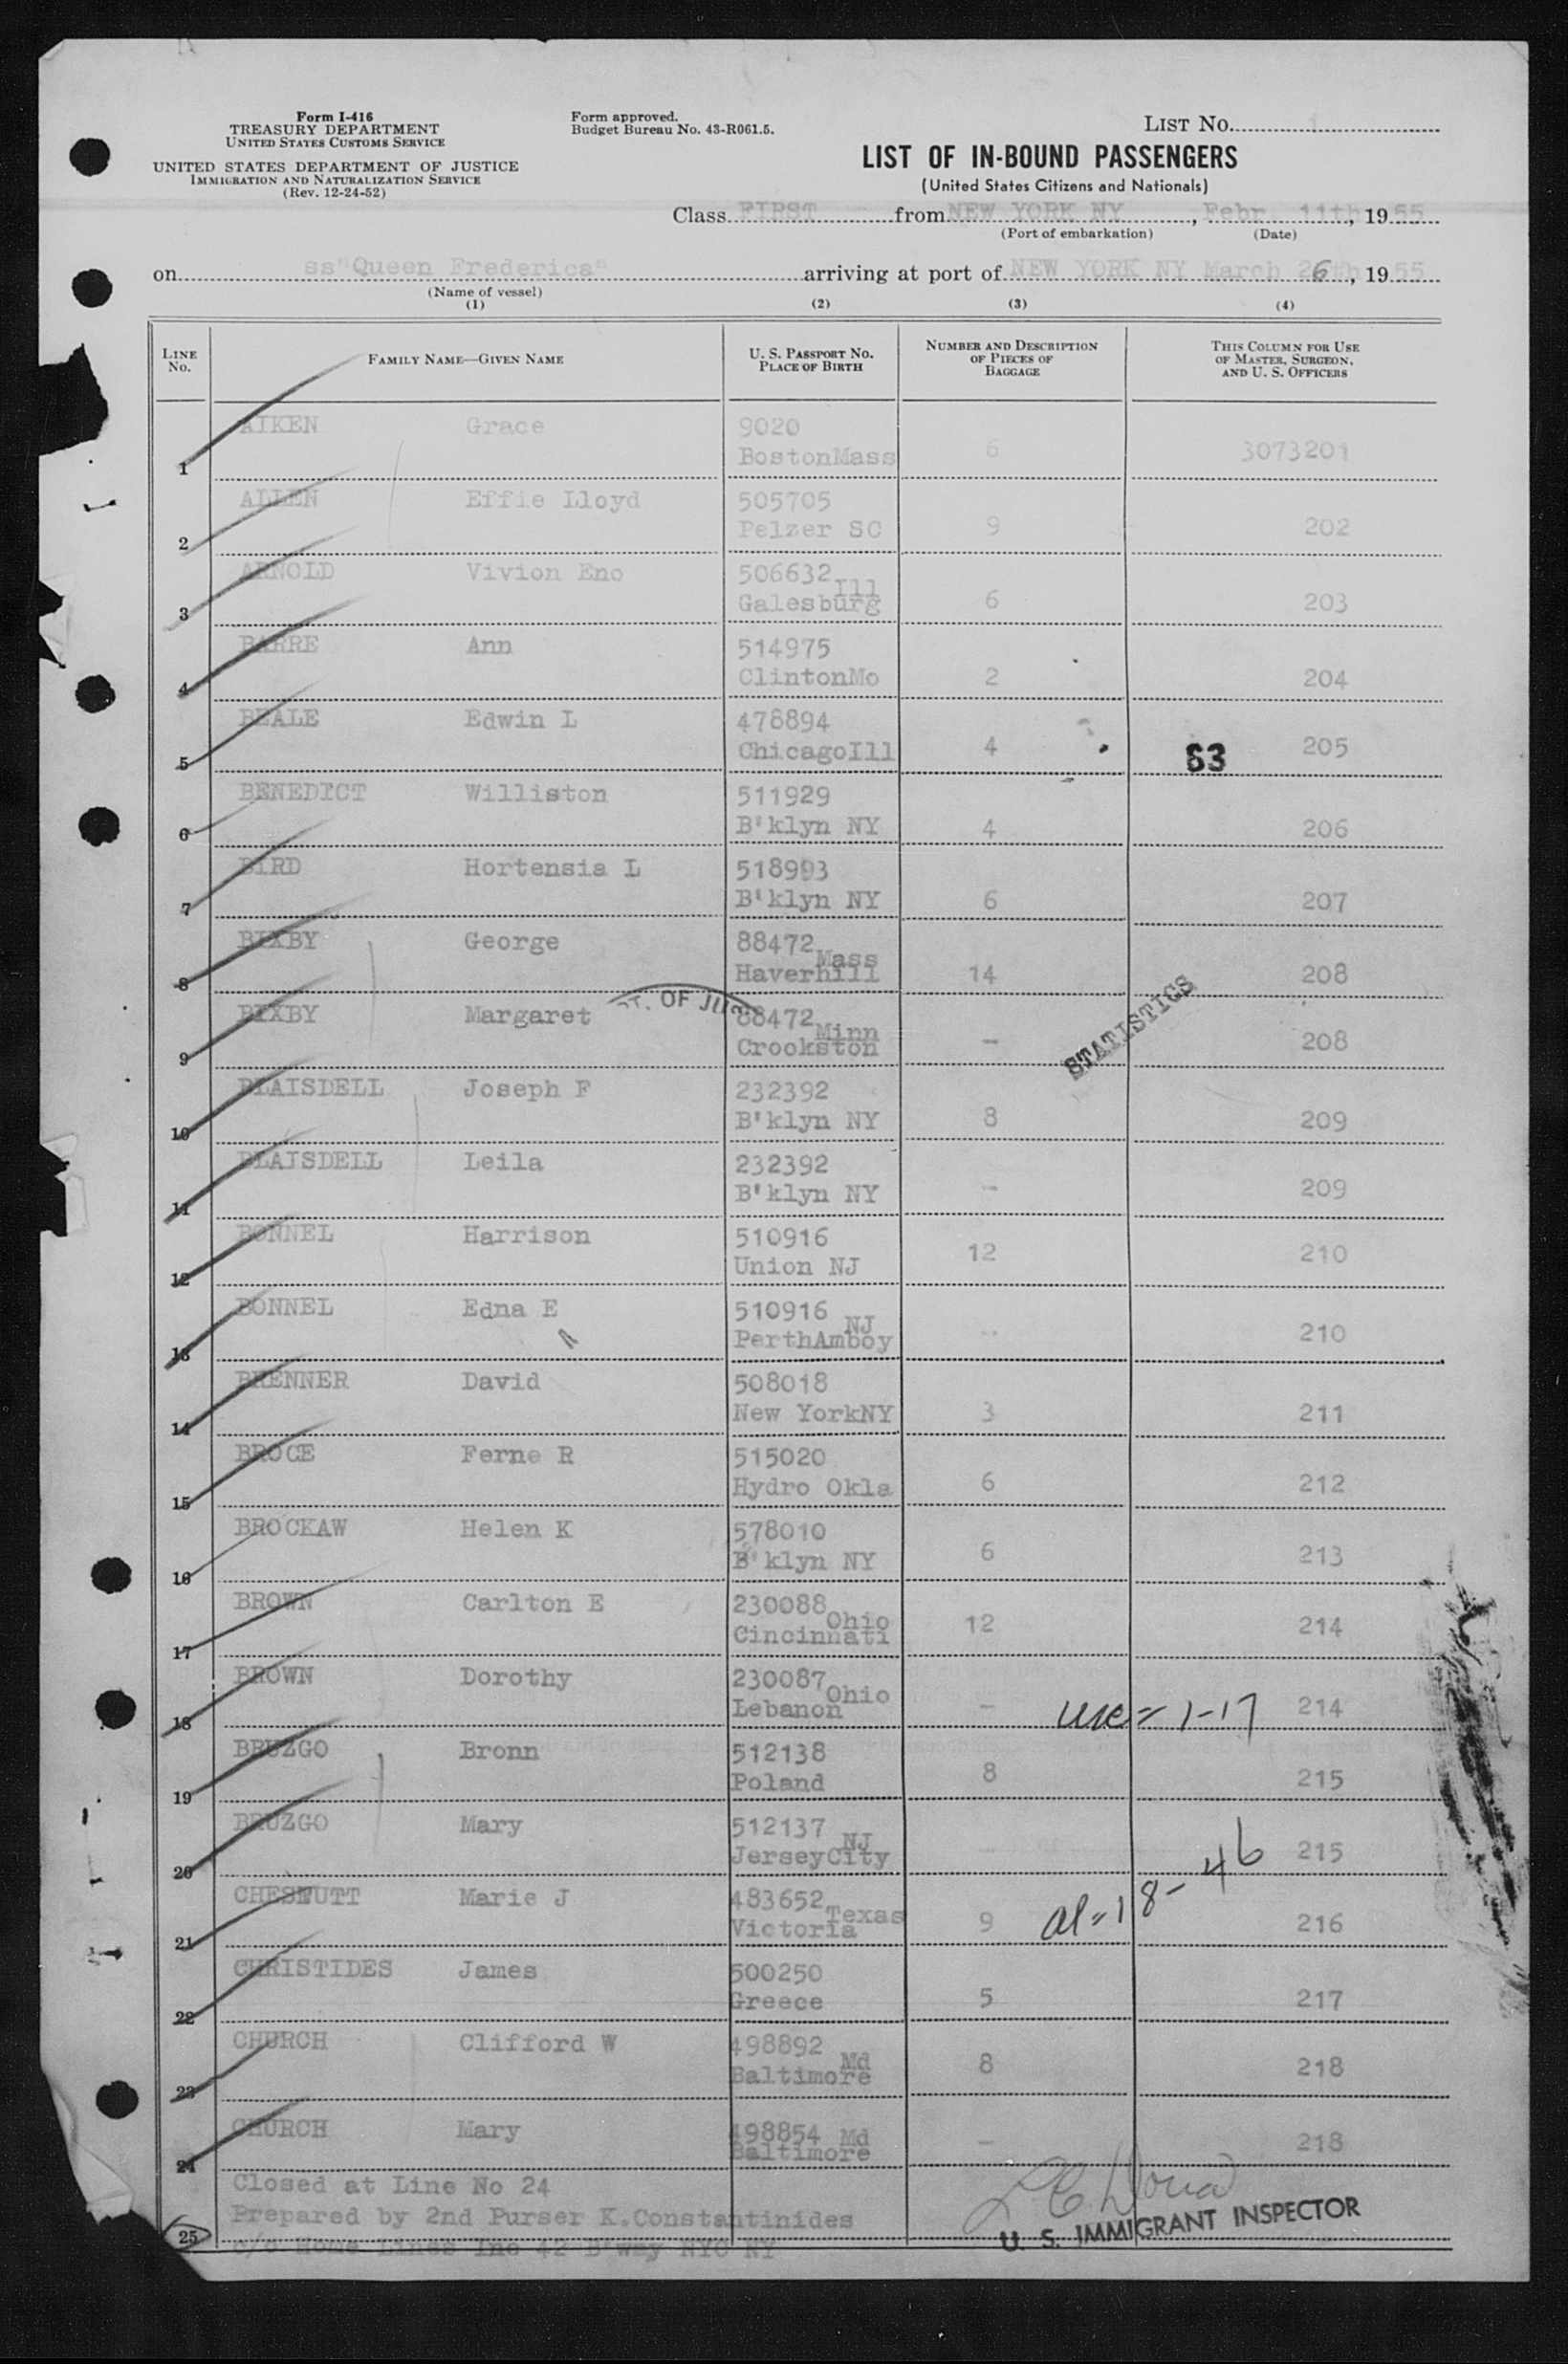 Form I-416
TREASURY DEPARTMENT
UNITED STATES CUSTOMS SERVICE
UNITED STATES DEPARTMENT OF JUSTICE
IMMIGRATION AND NATURALIZATION SERVICE
(Rev. 12-24-52)
Form approved.
Budget Bureau No. 43-R061.5.
LIST NO. 1
LIST OF IN-BOUND PASSENGERS
(United States Citizens and Nationals)
Class FIRST from NEW YORK NY, Febr. 11th, 1955
(Port of embarkation) (Date)
on ss"Queen Frederica" arriving at port of NEW YORK NY March 26th, 1955
(Name of vessel)
(1) (2) (3) (4)
LINE NO. FAMILY NAME—GIVEN NAME U. S. PASSPORT NO. PLACE OF BIRTH NUMBER AND DESCRIPTION OF PIECES OF BAGGAGE THIS COLUMN FOR USE OF MASTER, SURGEON, AND U. S. OFFICERS
1 AIKEN Grace 9020 BostonMass 6 3073201
2 ALLEN Effie Lloyd 505705 Pelzer SC 9 202
3 ARNOLD Vivion Eno 506632 Galesburg Ill 6 203
4 BARRE Ann 514975 ClintonMo 2 204
5 BEALE Edwin L 478894 ChicagoIll 4 63 205
6 BENEDICT Williston 511929 B'klyn NY 4 206
7 BIRD Hortensia L 518993 B'klyn NY 6 207
8 BIXBY George 88472 Haverhill Mass 14 208
9 BIXBY Margaret 88472 Crookston Minn - 208
OF JUS
STATISTICS
10 BLAISDELL Joseph F 232392 B'klyn NY 8 209
11 BLAISDELL Leila 232392 B'klyn NY - 209
12 BONNEL Harrison 510916 Union NJ 12 210
13 BONNEL Edna E 510916 PerthAmboy NJ - 210
14 BRENNER David 508018 New YorkNY 3 211
15 BROCE Ferne R 515020 Hydro Okla 6 212
16 BROCKAW Helen K 578010 B'klyn NY 6 213
17 BROWN Carlton E 230088 Cincinnati Ohio 12 214
18 BROWN Dorothy 230087 Lebanon Ohio - use = 1-17 214
19 BRUZGO Bronn 512138 Poland 8 215
20 BRUZGO Mary 512137 JerseyCity NJ 215
21 CHESNUTT Marie J 483652 Victoria Texas 9 al = 18-46 216
22 CHRISTIDES James 500250 Greece 5 217
23 CHURCH Clifford W 498892 Baltimore Md 8 218
24 CHURCH Mary 498854 Baltimore Md - 218
Closed at Line No 24
25 Prepared by 2nd Purser K.Constantinides
c/o Home Lines Inc 42 B'way NYC NY
U. S. IMMIGRANT INSPECTOR